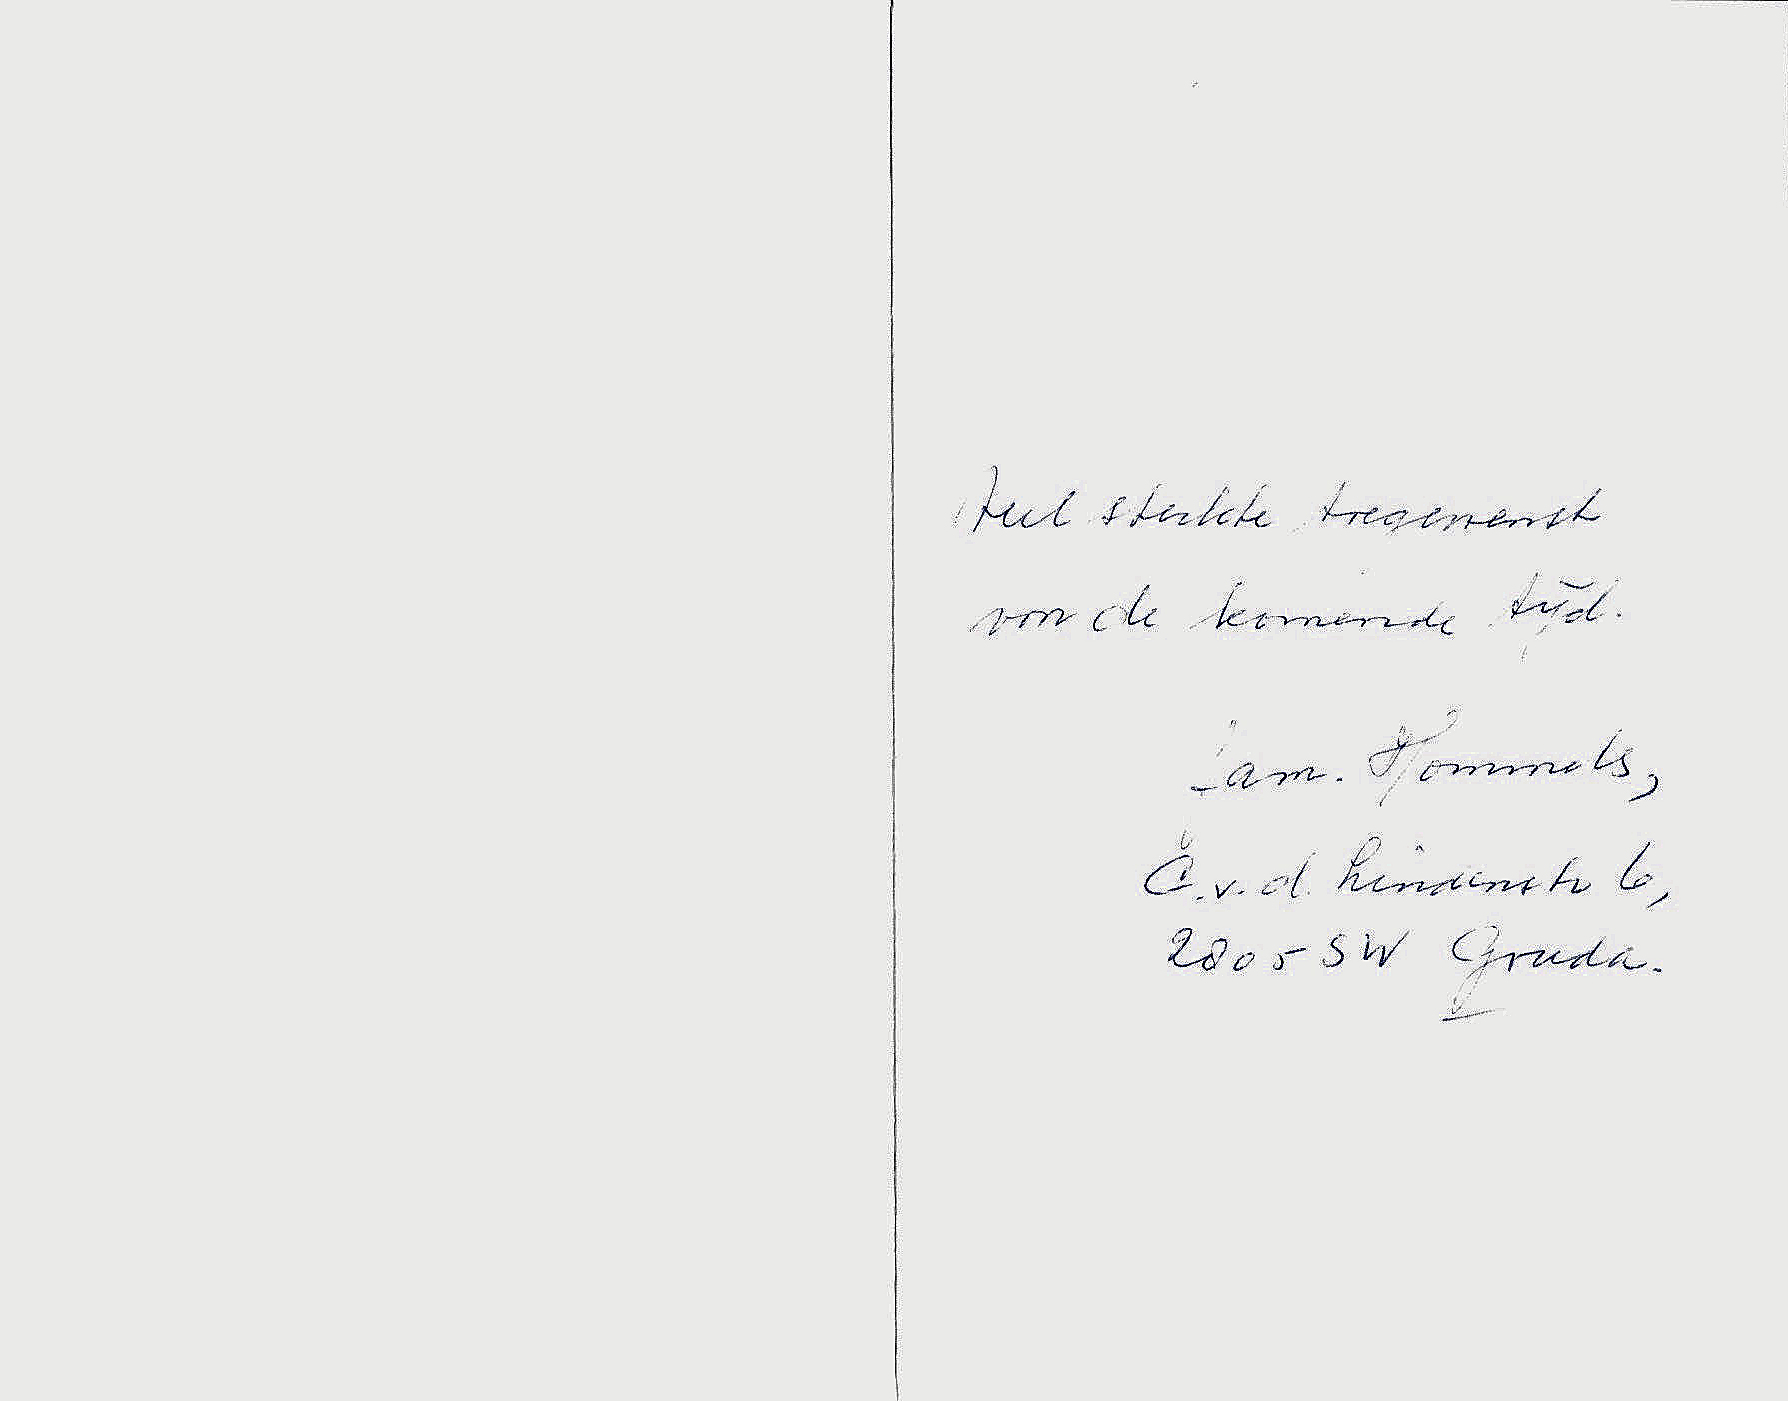 Veel sterkte toegewenst
voor de komende tijd.
Fam. Hommels,
C.v.d. Lindenstr 6,
2805 SW Gouda.